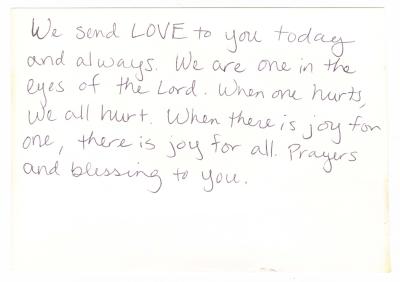 We send LOVE to you today
and always. We are one in the
eyes of the Lord. When one hurts,
we all hurt. When there is joy for
one, there is joy for all. Prayers
and blessing to you.